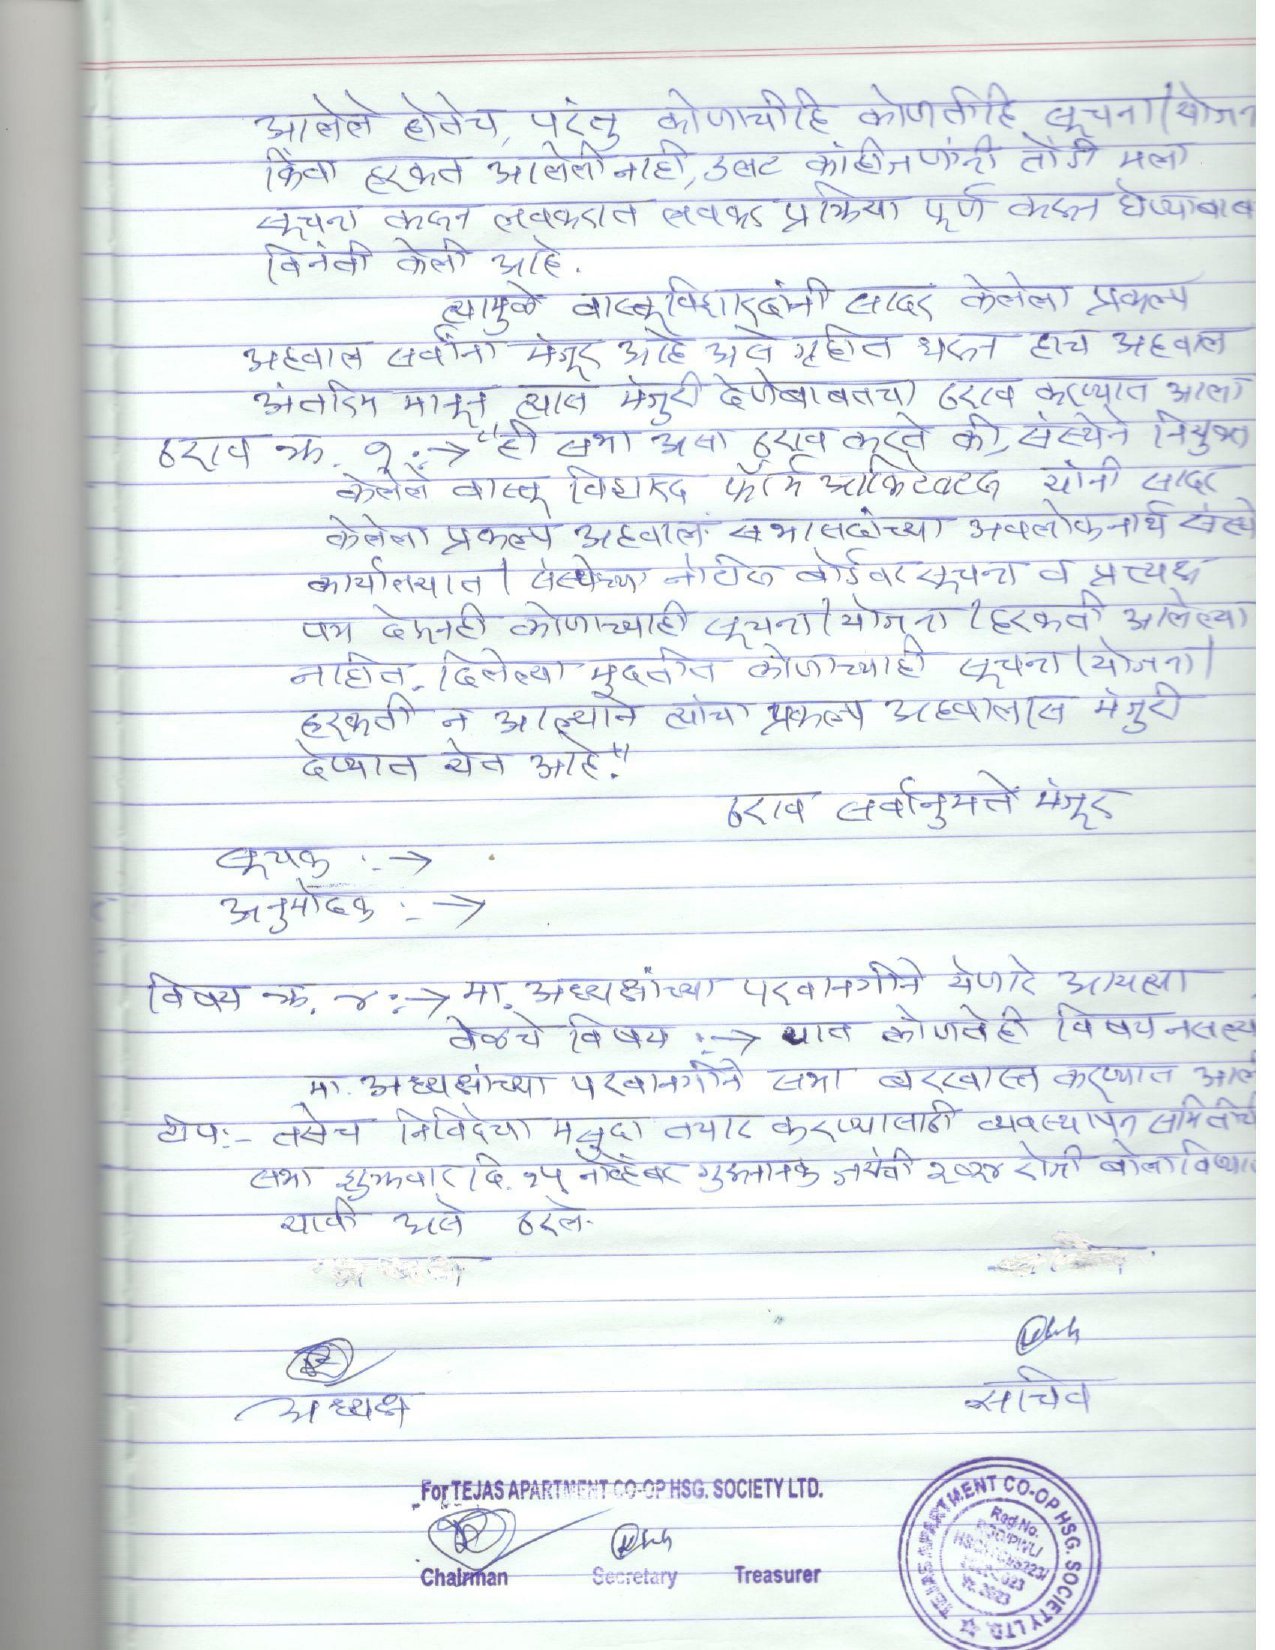 आलेले होतेच, परंतु कोणाचीहि कोणतीहि सूचना/योजन
किंवा हरकत आलेली नाही, उलट कांहीजणांनी तोंडी मला
सूचना करून लवकरात लवकर प्रक्रिया पूर्ण करून घेण्याबाब
विनंती केली आहे.
त्यामुळे वास्तूविशारदांनी सादर केलेला प्रकल्प
अहवाल सर्वांना मंजूर आहे असे गृहीत धरून हाच अहवाल
अंतरिम मानून त्यास मंजुरी देणेबाबतचा ठराव करण्यात आला
ठराव क्र. १ :→ "ही सभा असा ठराव करते की, संस्थेने नियुक्त
केलेले वास्तू विशारद फॉर्म आर्किटेक्टस यांनी सादर
केलेला प्रकल्प अहवाल सभासदांच्या अवलोकनार्थ संस्थे
कार्यालयात / संस्थेच्या नोटीस बोर्डवर सूचना व प्रत्यक्ष
पत्र देऊनही कोणाच्याही सूचना/योजना/हरकती आलेल्या
नाहीत. दिलेल्या मुदतीत कोणाच्याही सूचना/योजना/
हरकती न आल्याने त्यांचा प्रकल्प अहवालास मंजुरी
देण्यात येत आहे."
ठराव सर्वानुमते मंजूर
सूचक :→
अनुमोदक :→
विषय क्र. ४ :→ मा. अध्यक्षांच्या परवानगीने येणारे आयत्या
वेळचे विषय :→ यात कोणतेही विषय नसल्य
मा. अध्यक्षांच्या परवानगीने सभा बरखास्त करण्यात आल
टीप:- तसेच निविदेचा मसुदा तयार करण्यासाठी व्यवस्थापन समितीची
सभा शुक्रवार दि. १५ नोव्हेंबर गुरुनानक जयंती २०२४ रोजी बोलाविण्यात
यावी असे ठरले.
अध्यक्ष
सचिव
For TEJAS APARTMENT CO-OP HSG. SOCIETY LTD.
Chairman Secretary Treasurer
TEJAS APARTMENT CO-OP HSG. SOCIETY LTD.
Reg No.